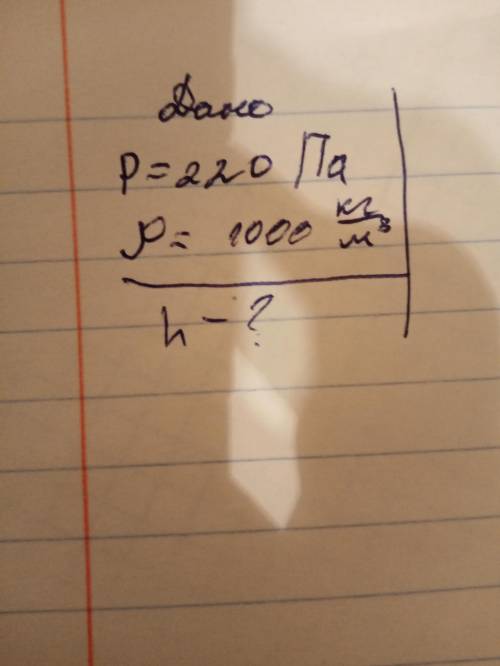 Дано
P = 220 Па
ρ = 1000 кг/м³
h - ?